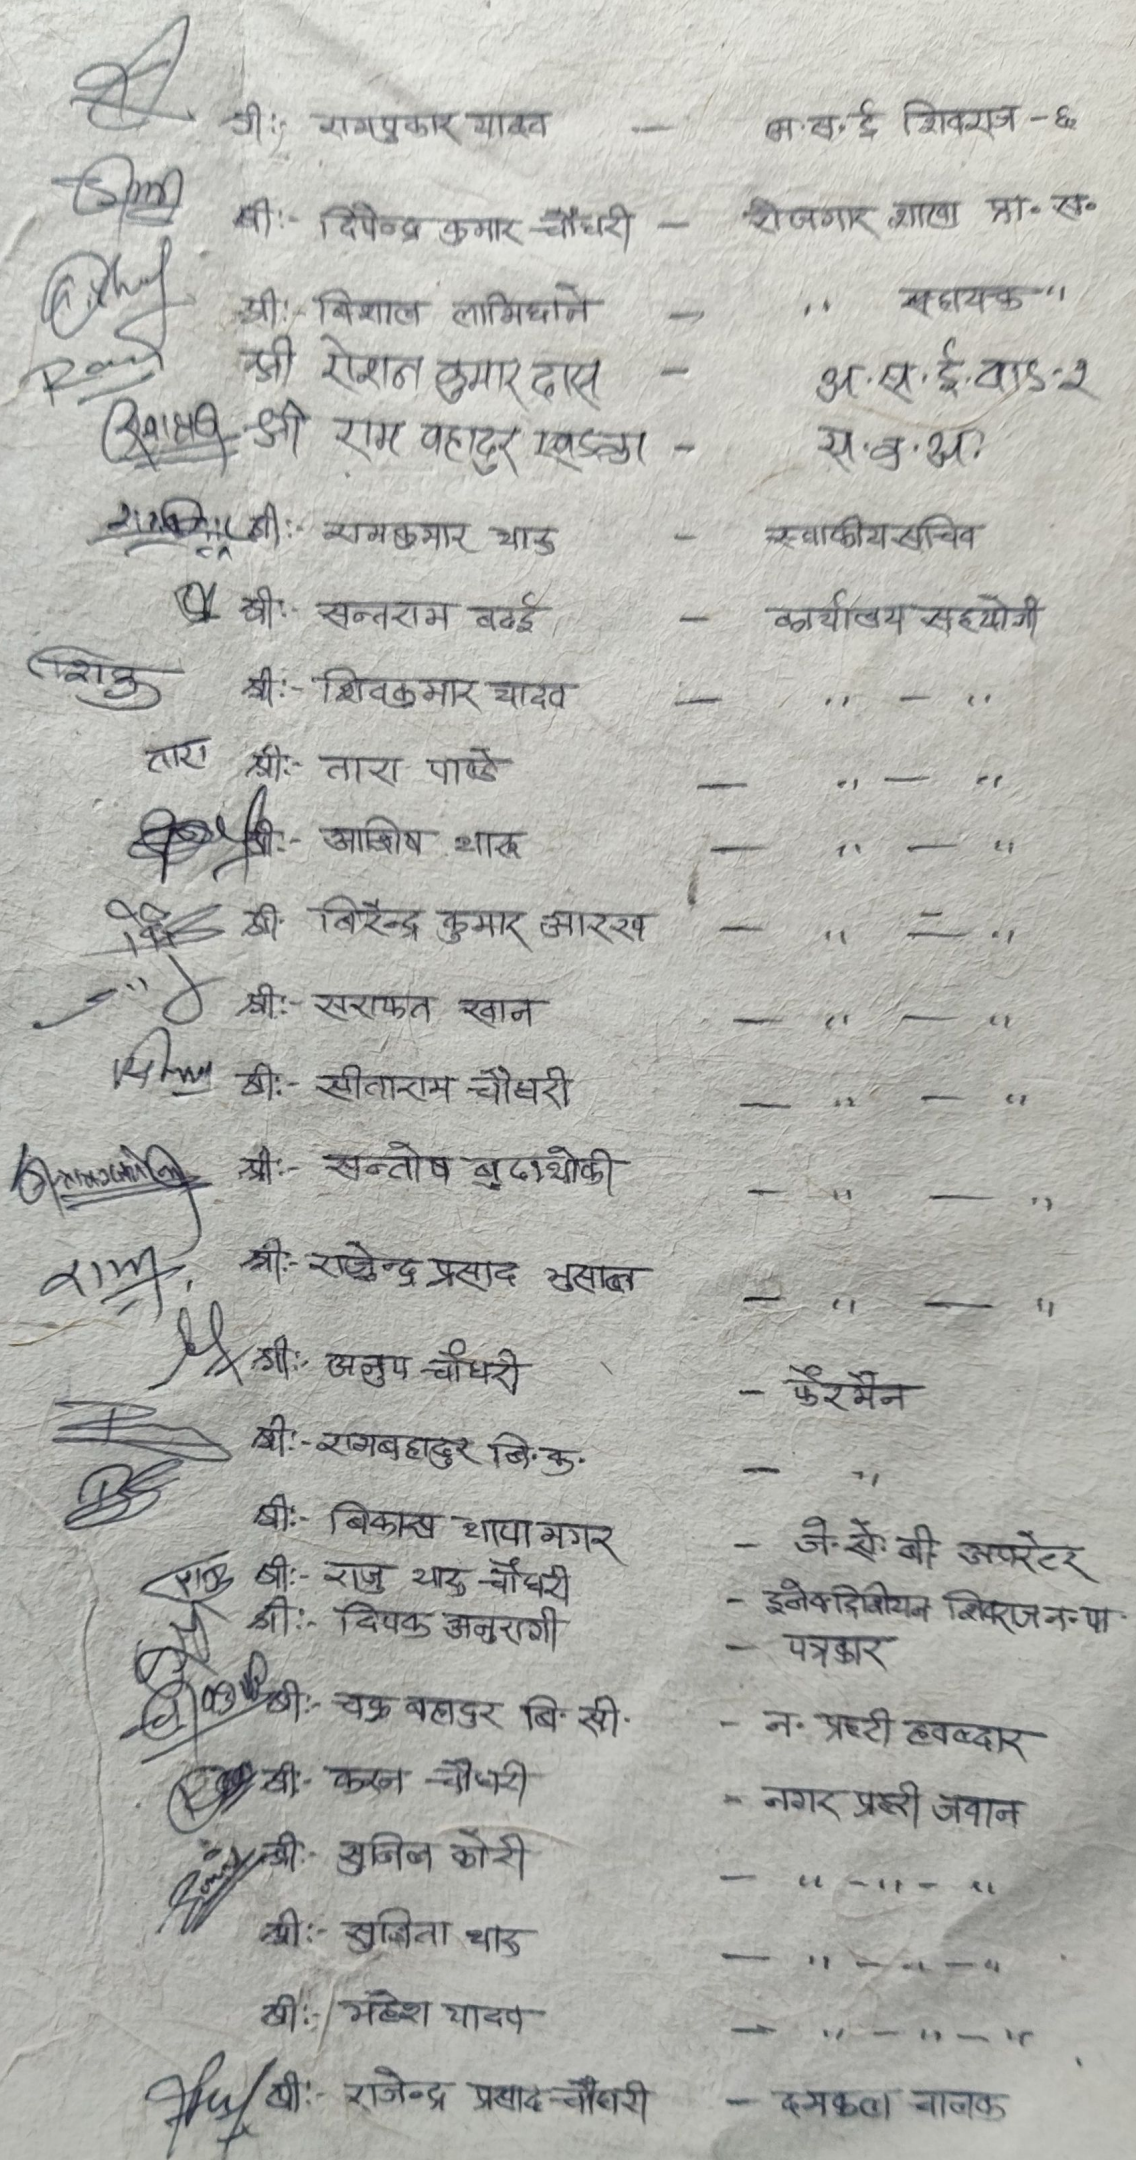 श्री:- रामप्रकार यादव — अ.स.ई शिवराज - ६
श्री:- दिपेन्द्र कुमार चौधरी — रोजगार शाखा प्रा. स.
श्री:- बिशाल लामिछाने — " सहायक "
श्री रोशन कुमार दास - अ.स.ई. वाड-२
श्री राम बहादुर खड्का - स.क.अ.
श्री:- रामकुमार थारु - स्वाकीय सचिव
श्री:- सन्तराम बढई — कार्यालय सहयोगी
शिकु श्री:- शिवकुमार यादव — " — "
तारा श्री:- तारा पाण्डे — " — "
श्री:- आशिष थारु — " — "
श्री. बिरेन्द्र कुमार आरख — " — "
श्री:- सराफत खान — " — "
श्री:- सीताराम चौधरी — " — "
श्री:- सन्तोष बुढाथोकी — " — "
राम श्री:- राजेन्द्र प्रसाद भुसाल — " — "
श्री:- अनुप चौधरी - फोरमेन
श्री:- रामबहादुर बि.क. — "
श्री:- बिकास थापा मगर - जे.सी.बी. अपरेटर
राजु श्री:- राजु थारु चौधरी - इलेक्ट्रिसियन शिवराज न.पा.
श्री:- दिपक अनुरागी — पत्रकार
श्री:- चक्र बहादुर बि.सी. - न. प्रहरी हवल्दार
श्री:- करन चौधरी - नगर प्रहरी जवान
श्री:- सुनिल कोरी — " - " - "
श्री:- सुजिता थारु — " - " - "
श्री:- महेश यादव — " - " - "
श्री:- राजेन्द्र प्रसाद चौधरी — दमकल चालक